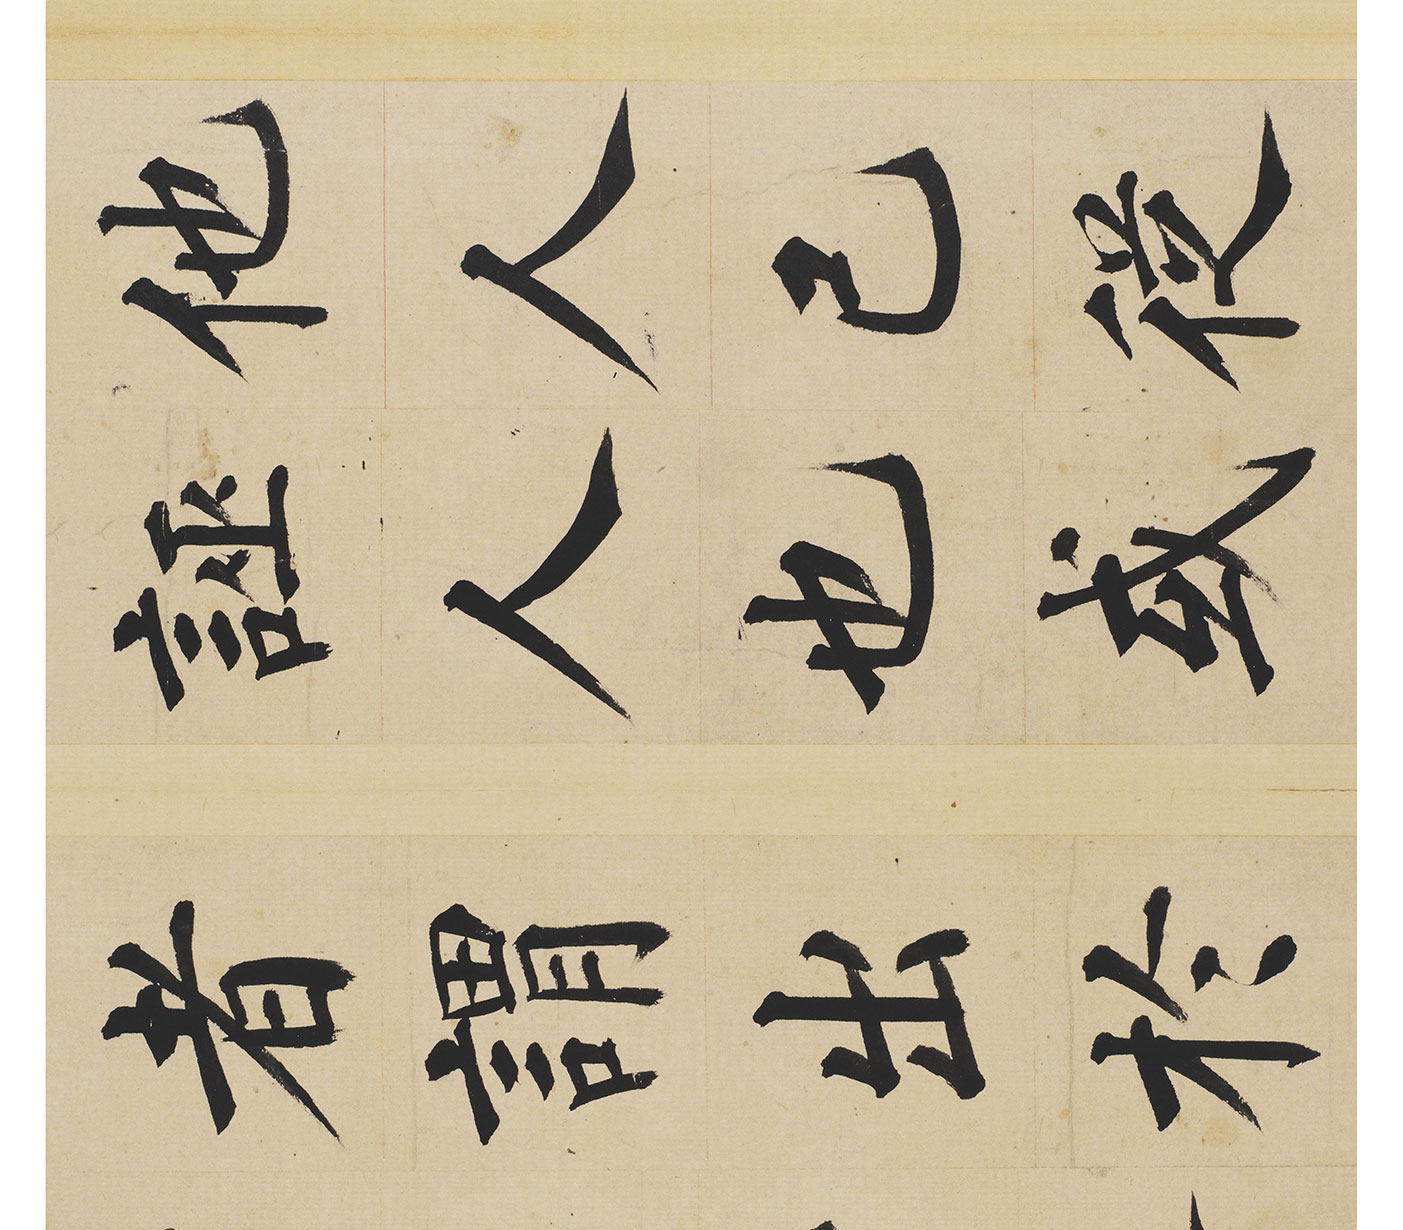 他人己從
誣人也或
者謂出於